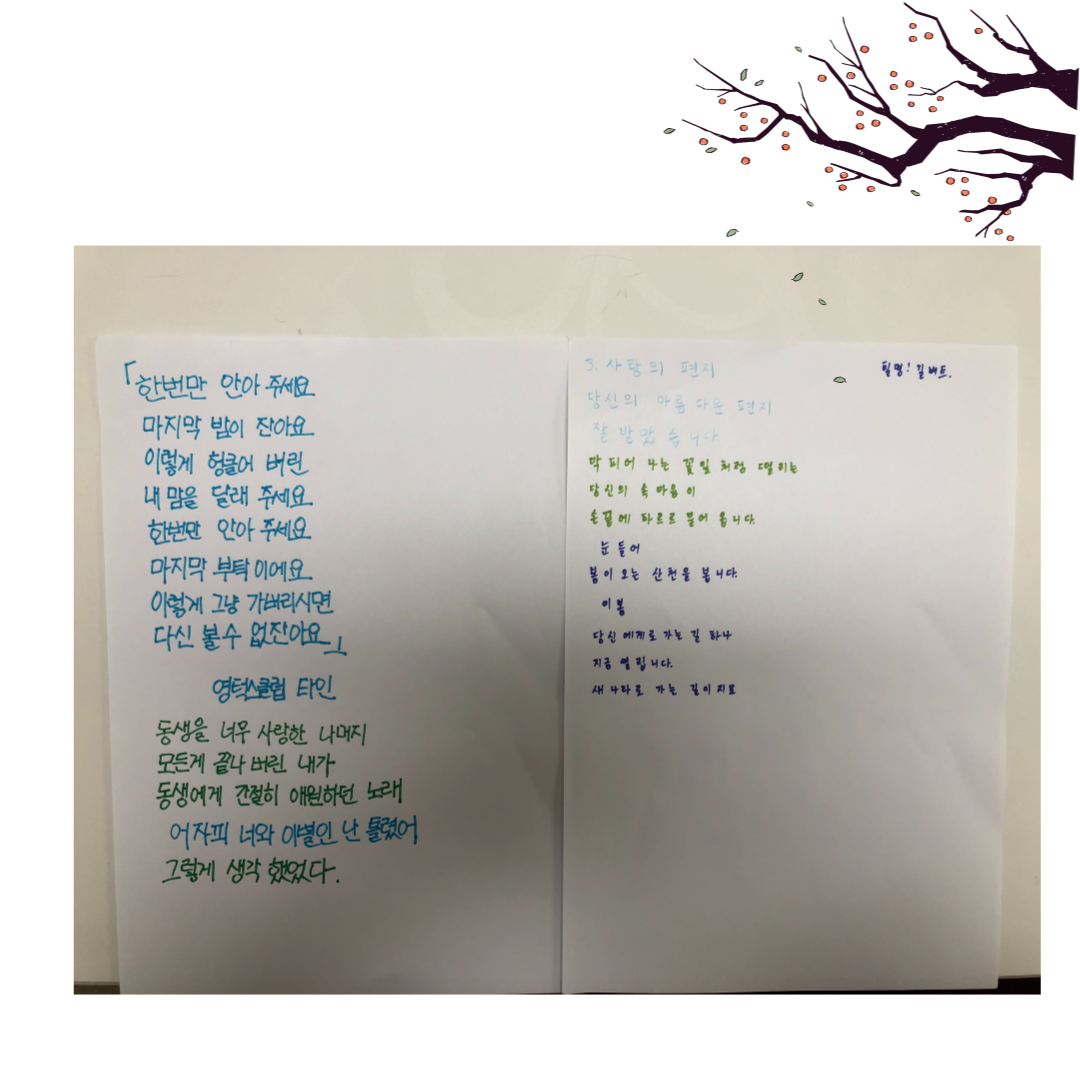 「한번만 안아 주세요
마지막 밤이 잖아요
이렇게 헝클어 버린
내 맘을 달래 주세요
한번만 안아 주세요
마지막 부탁이에요
이렇게 그냥 가버리시면
다신 볼수 없잖아요」
영턱스클럽 타인
동생을 너무 사랑한 나머지
모든게 끝나 버린 내가
동생에게 간절히 애원하던 노래
어차피 너와 이별인 난 틀렸어
그렇게 생각 했었다.
3. 사랑의 편지
필명! 길버트.
당신의 아름 다운 편지
잘 받았 습니다
막 피어 나는 꽃잎 처럼 떨리는
당신의 속 마음 이
손끝에 파르르 묻어 옵니다.
눈 들어
봄이 오는 산천을 봅니다.
이 봄
당신 에게로 가는 길 하나
지금 열립니다.
새 나라로 가는 길이지요